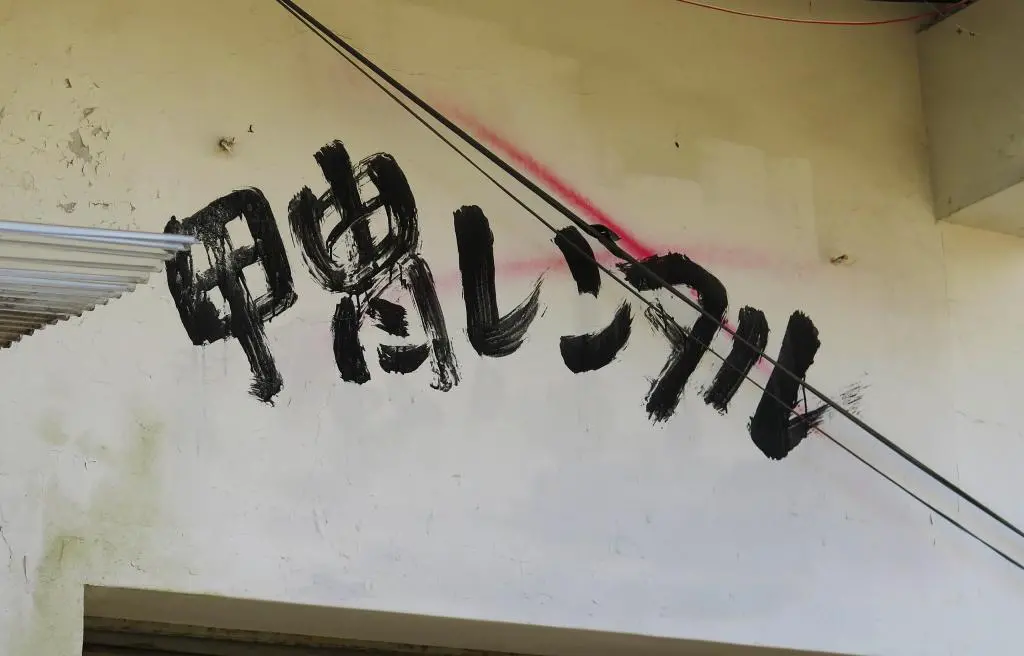 甲冑レンタル